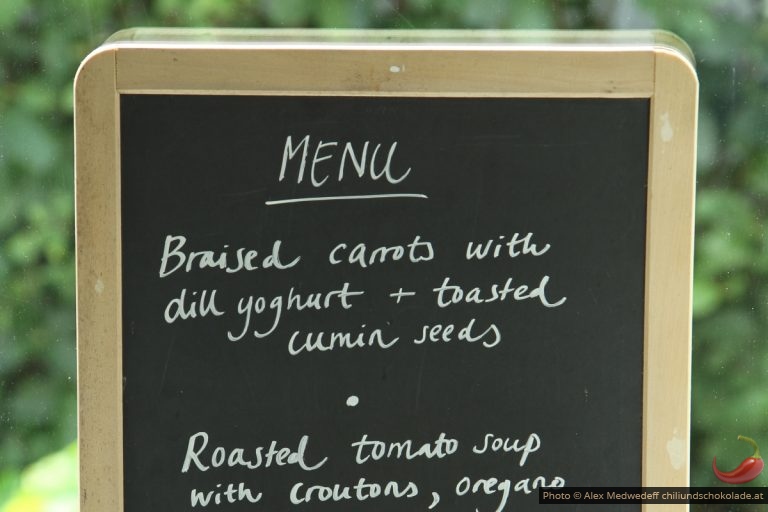 MENU
Braised carrots with
dill yoghurt + toasted
cumin seeds
•
Roasted tomato soup
with croutons, oregano
Photo © Alex Medwedeff chiliundschokolade.at